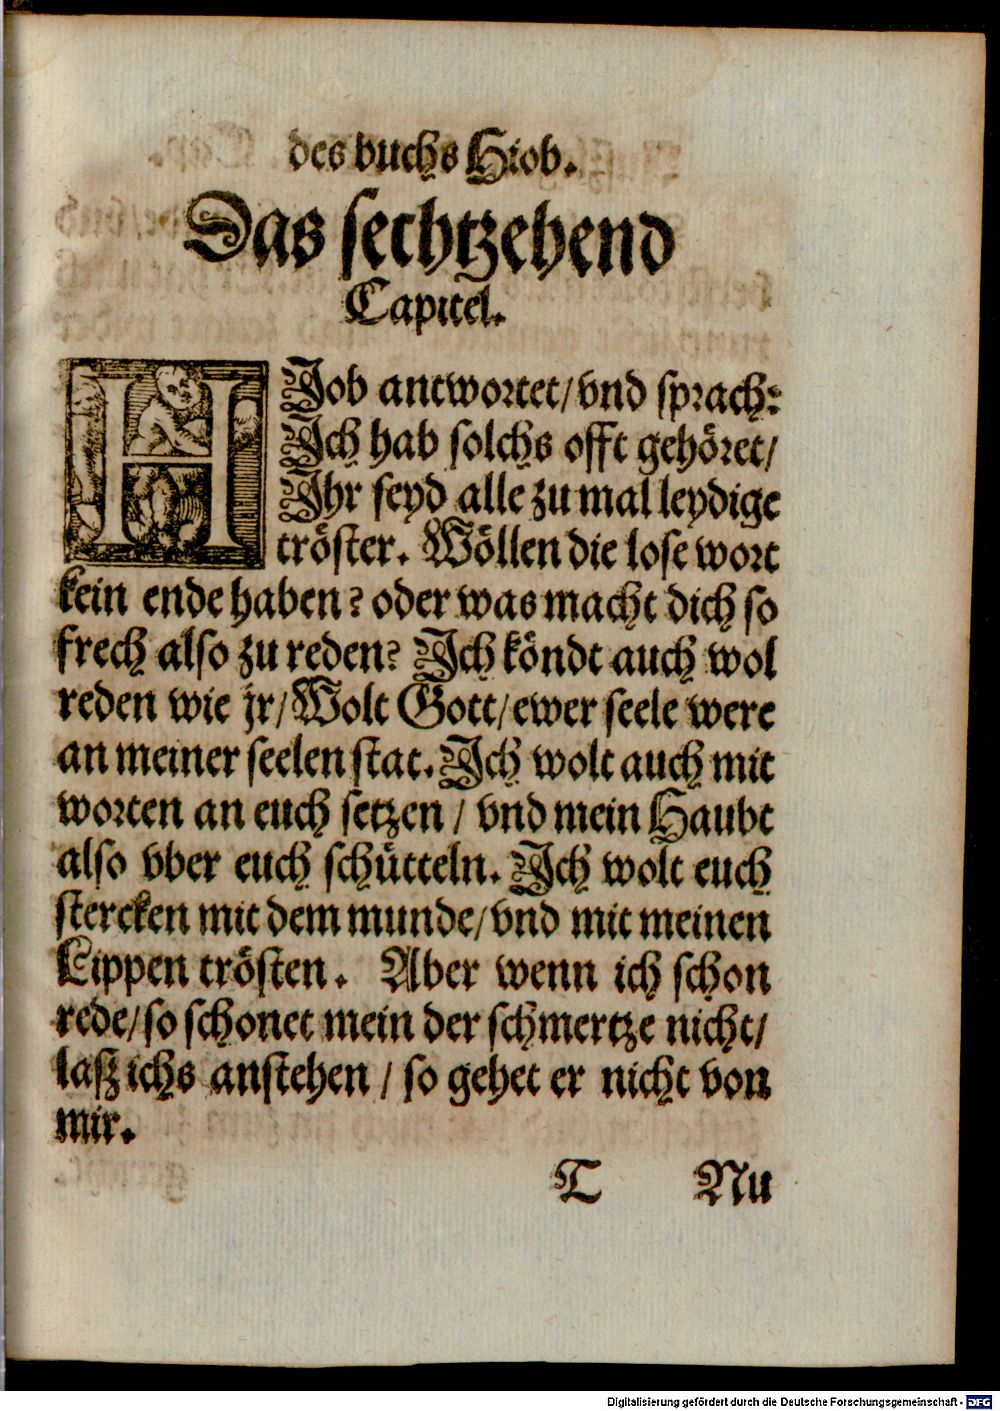 des buchs Hiob.
Das sechtzehend
Capitel.
HJob antwortet/ vnd sprach:
Jch hab solchs offt gehöret/
Jhr seyd alle zu mal leydige
tröster. Wöllen die lose wort
kein ende haben? oder was macht dich so
frech also zu reden? Jch köndt auch wol
reden wie jr/ Wolt Gott/ ewer seele were
an meiner seelen stat. Jch wolt auch mit
worten an euch setzen / vnd mein Haubt
also vber euch schütteln. Jch wolt euch
stercken mit dem munde/ vnd mit meinen
Lippen trösten. Aber wenn ich schon
rede/ so schonet mein der schmertze nicht/
laß ichs anstehen / so gehet er nicht von
mir.
T Nu
Digitalisierung gefördert durch die Deutsche Forschungsgemeinschaft - DFG